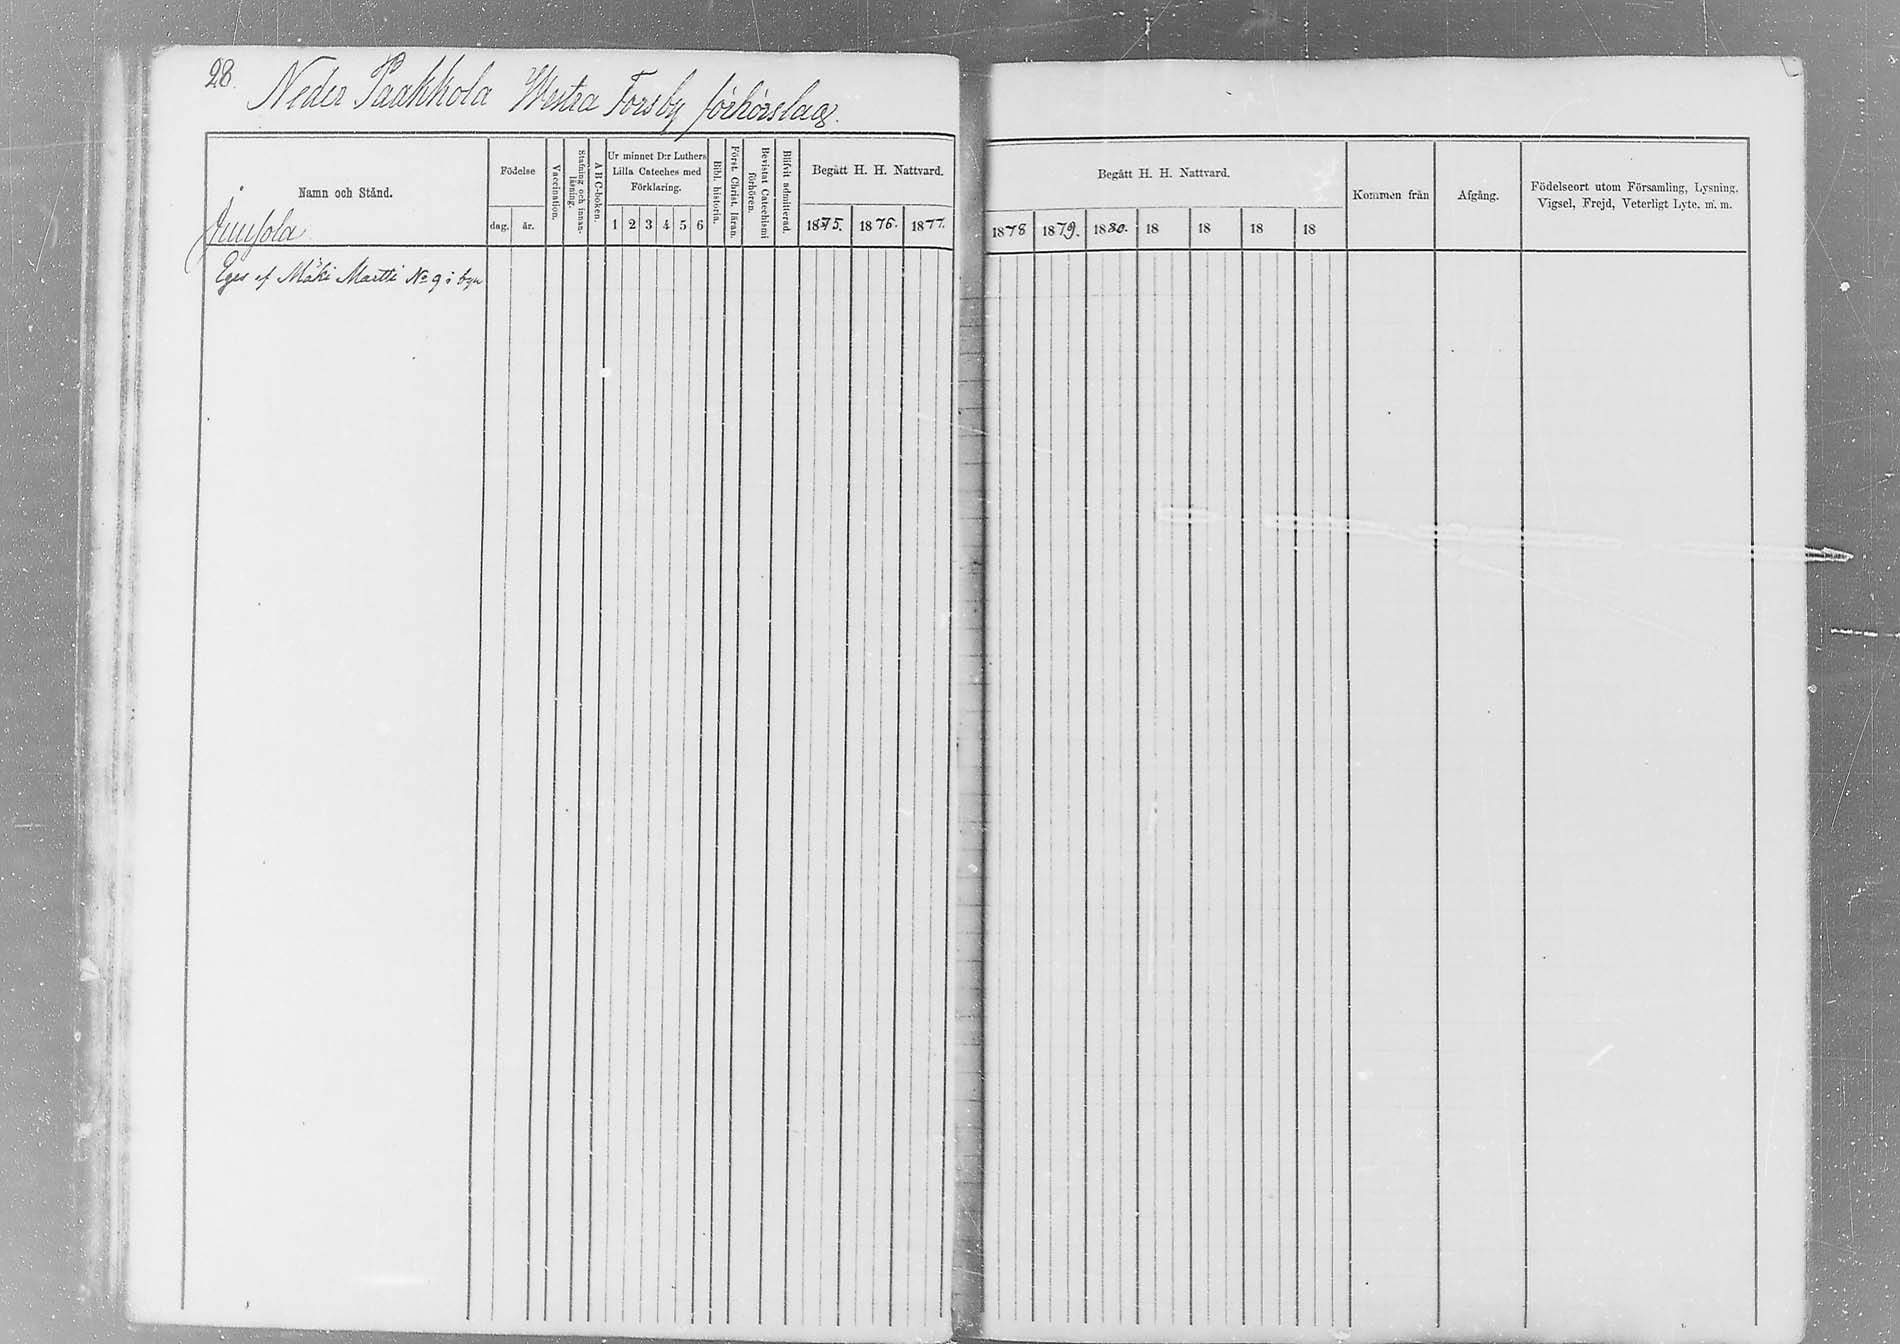 28.
Neder Paakkola Westra Forsby förhörslag.
Namn och Stånd.
Juusola
Födelse
dag. år.
Vaccination.
Stafning och innan-
läsning.
A B C-boken.
Ur minnet D:r Luthers
Lilla Cateches med
Förklaring.
1 2 3 4 5 6
Bibl. historia.
Först. Christ. läran.
Bevistat Catechismi
förhören.
Blifvit admitterad.
Begått H. H. Nattvard.
1875. 1876. 1877.
Eges af Mäki Martti No 9 i byn
Begått H. H. Nattvard.
1878 1879. 1880. 18 18 18 18
Kommen från
Afgång.
Födelseort utom Församling, Lysning,
Vigsel, Frejd, Veterligt Lyte. m. m.